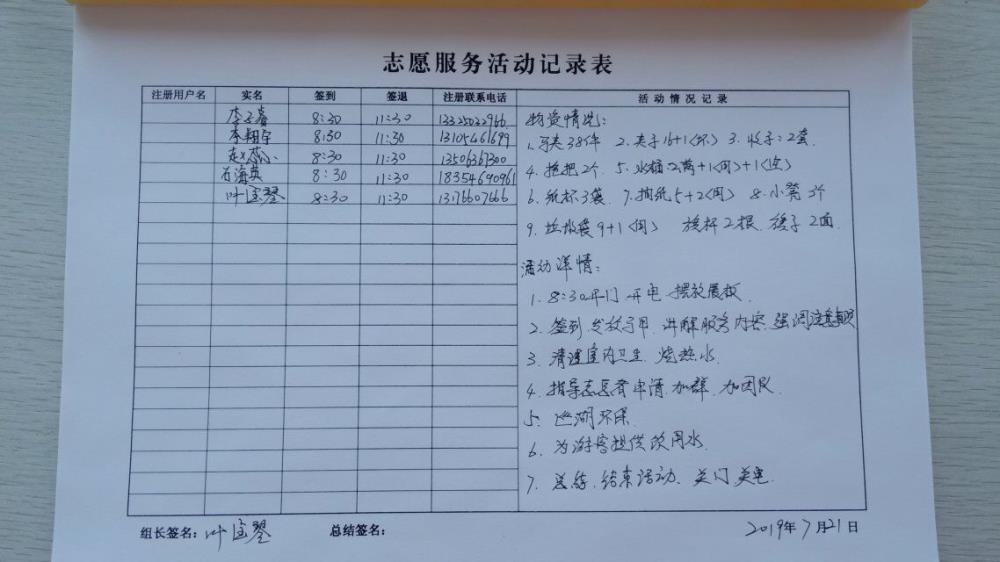 志愿服务活动记录表
注册用户名 实名 签到 签退 注册联系电话 活动情况记录
李子睿 8:30 11:30 13325022966
李翔宇 8:30 11:30 13105461699
赵 8:30 11:30 13506367300
石海英 8:30 11:30 18354690961
叶宝琴 8:30 11:30 13176607666
物资情况:
1. 马夹38件 2. 夹子16+1(坏) 3. 2套
4. 拖把2个 5. 水桶2满+1(用)+1(空)
6. 纸杯3袋 7. 抽纸5+2(用) 8. 小凳3个
9. 垃圾袋9+1(用) 旗杆2根 旗子2面
活动详情:
1. 8:30开门 开电 摆放展板
2. 签到 发放马甲 讲解服务内容 强调注意事项
3. 清理室内卫生 烧热水
4. 指导志愿者申请 加群 加团队
5. 巡湖环保
6. 为游客提供饮用水
7. 总结、结束活动、关门 关电
组长签名: 叶宝琴 总结签名: 2019年7月21日